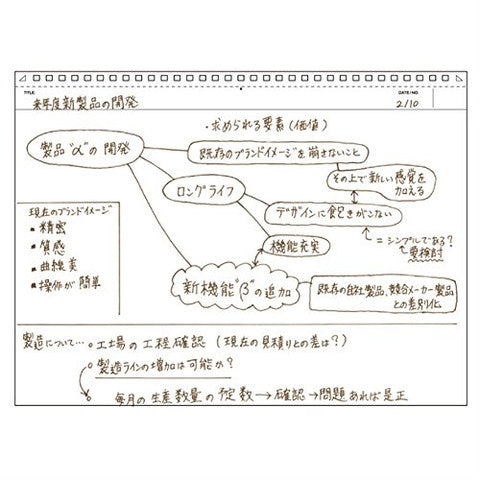 TITLE
来年度新製品の開発
DATE/NO.
2/10
・求められる要素(価値)
製品"α"の開発
既存のブランドイメージを崩さないこと
その上で新しい感覚を
加える
ロングライフ
デザインに飽きがこない
=シンプルである?
要検討
機能充実
新機能"β"の追加
既存の自社製品、競合メーカー製品
との差別化
現在のブランドイメージ
▪ 精密
▪ 質感
▪ 曲線美
▪ 操作が簡単
製造について…。工場の工程確認(現在の見積りとの差は?)
。製造ラインの増加は可能か?
。毎月の生産数量の予定数→確認→問題あれば是正